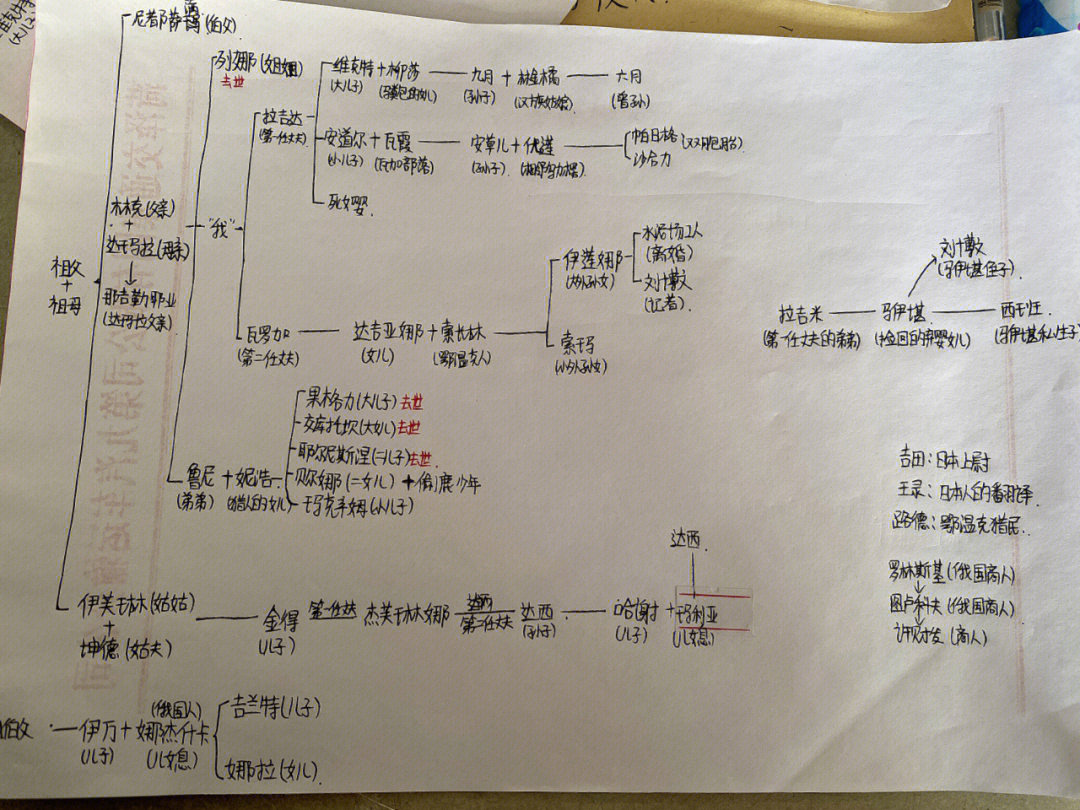 (大儿子)
尼都萨满(伯父)
列娜(姐姐)
去世
拉吉达
(第一任丈夫)
维克特+柳莎——九月+林金橘——六月
(大儿子) (马粪包的女儿) (孙子) (汉族姑娘) (曾孙)
安道尔+瓦霞——安草儿+优莲
(小儿子) (瓦加部落) (孙子)
帕日格
沙合力
(双胞胎)
死女婴
林克(父亲)
+
达玛拉(母亲)
那吉勒耶业
(达玛拉父亲)
祖父
+
祖母
"我"
瓦罗加——达吉亚娜+索长林
(第二任丈夫) (女儿) (鄂温克人)
伊莲娜
(大外孙女)
水泥场工人
(离婚)
刘博文
(记者)
索玛
(小外孙女)
刘博文
(马伊堪侄子)
拉吉米——马伊堪——西班
(第一任丈夫的弟弟) (捡回的弃婴女儿) (马伊堪私生子)
鲁尼+妮浩
(弟弟) (猎人的女儿)
果格力(大儿子)去世
交库托坎(大女儿)去世
耶尔尼斯涅(二儿子)去世
贝尔娜(二女儿)+偷鹿少年
玛克辛姆(小儿子)
吉田:日本上尉
王录:日本人的翻译
路德:鄂温克猎民
罗林斯基(俄国商人)
图卢科夫(俄国商人)
许财发(商人)
达西
伊芙琳(姑姑)
+
坤德(姑夫)
金得 第一任丈夫 杰芙琳娜 第二任丈夫 达西——哈谢+玛利亚
(儿子) (孙子) (儿子) (儿媳)
伯父——伊万+娜杰什卡
(儿子) (儿媳)
(俄国人)
吉兰特(儿子)
娜拉(女儿)